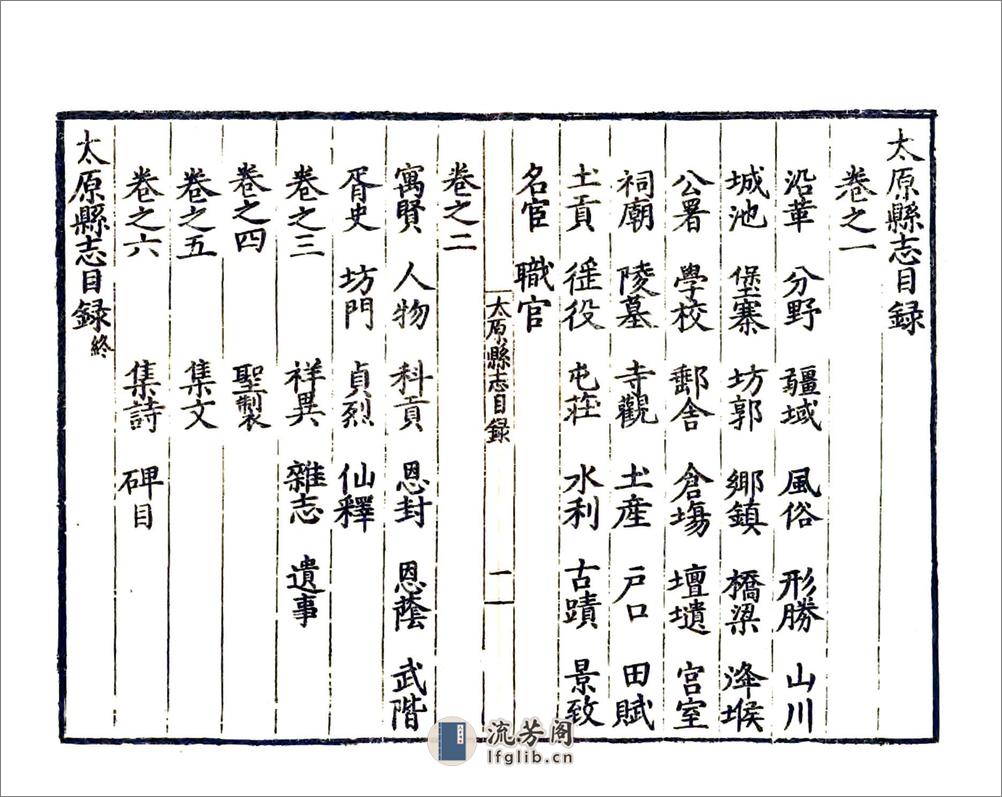 太原縣志目録
卷之一
沿革 分野 疆域 風俗 形勝 山川
城池 堡寨 坊郭 鄉鎮 橋梁 烽堠
公署 學校 郵舍 倉場 壇壝 宫室
祠廟 陵墓 寺觀 土産 戸口 田賦
土貢 徭役 屯莊 水利 古蹟 景致
名宦 職官
太原縣志目録
一
卷之二
寓賢 人物 科貢 恩封 恩蔭 武階
胥史 坊門 貞烈 仙釋
卷之三 祥異 雜志 遺事
卷之四 聖製
卷之五 集文
卷之六 集詩 碑目
太原縣志目録終
流芳阁
lfglib.cn